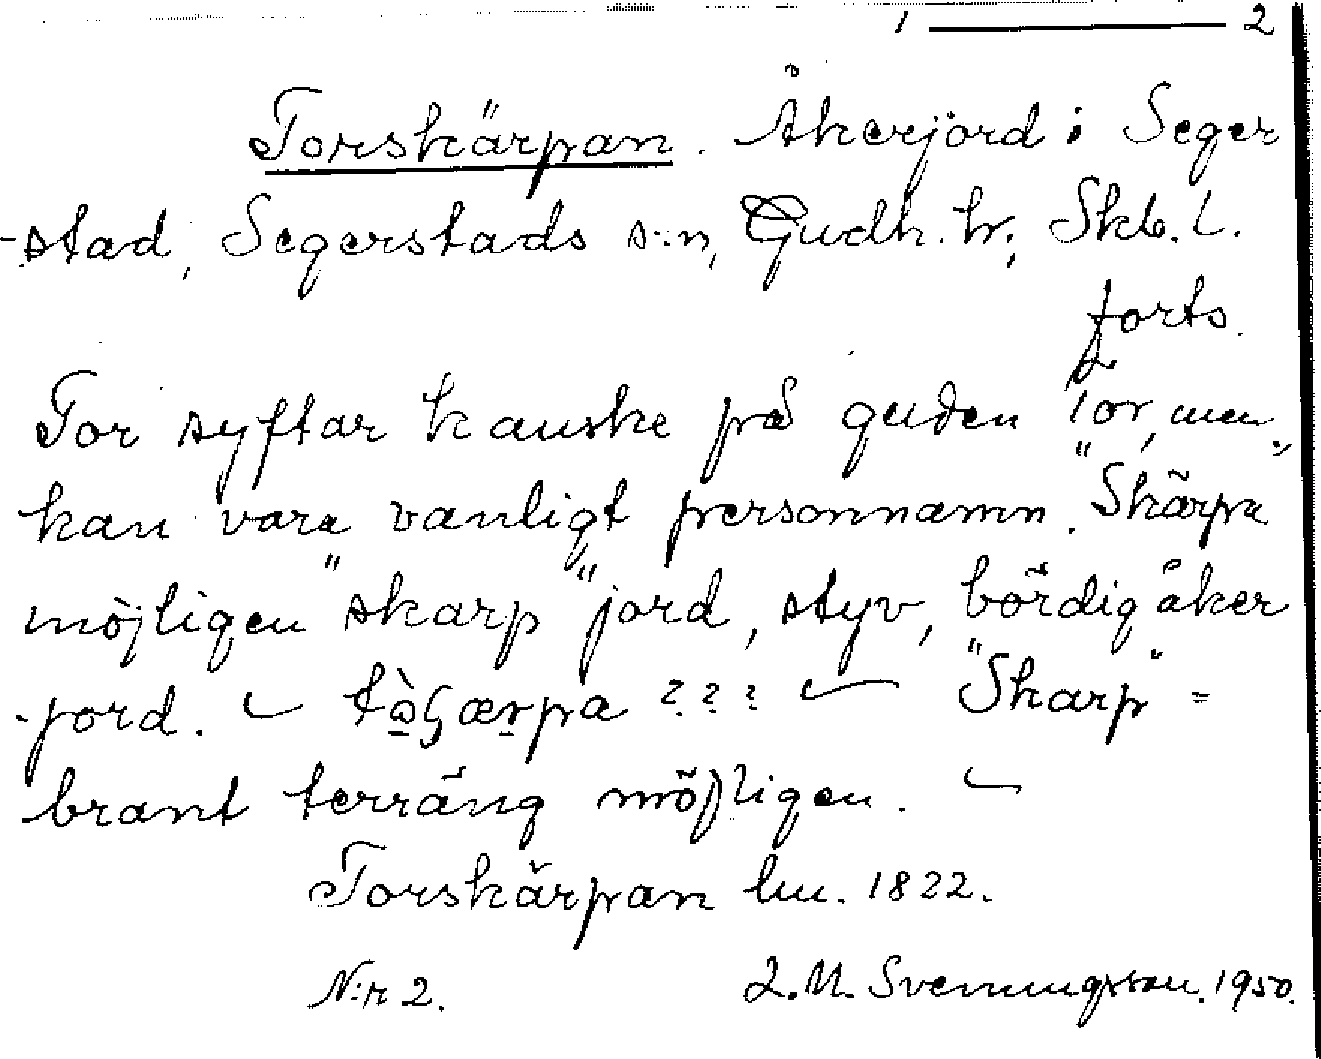 1 — 2
Torskärpan. Åkerjord i Seger
-stad, Segerstads s:n, Gudh. hr, Skb. l.
forts.
Tor syftar kanske på guden Tor, men
kan vara vanligt personnamn. "Skärpa"
möjligen "skarp" jord, styv, bördig åker
-jord. — 
"Skarp" =
brant terräng möjligen. —
Torskärpan lm. 1822.
N:r 2. L. M. Svenungsson. 1950.